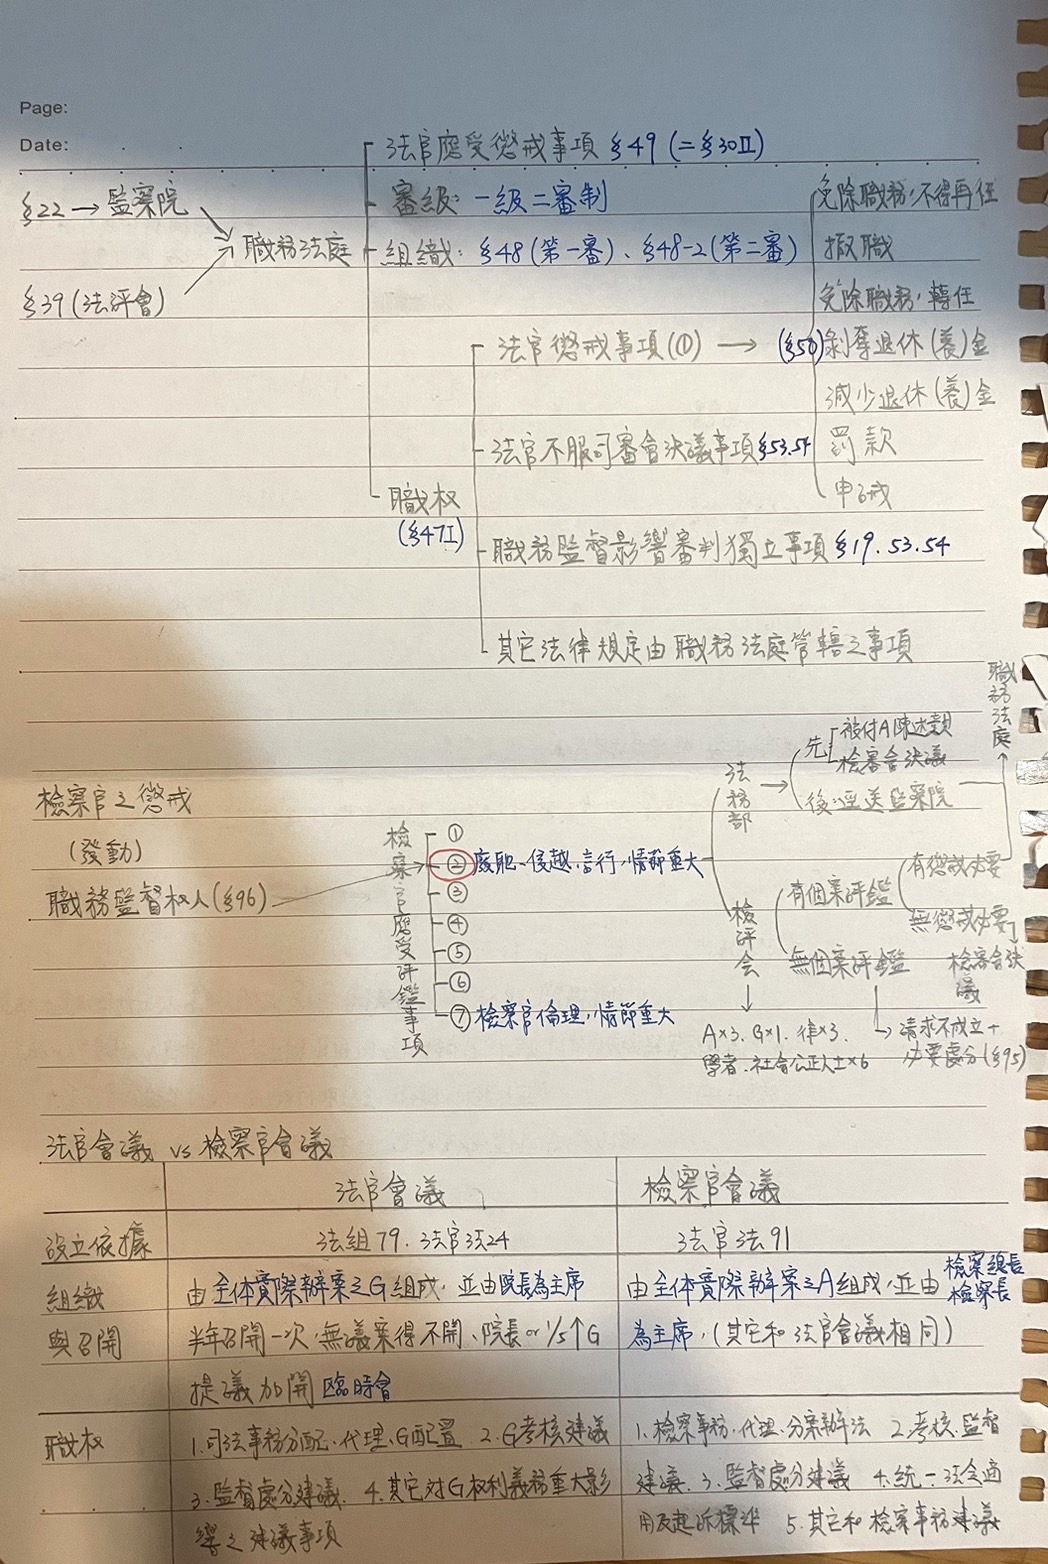 Page:
Date:
法官應受懲戒事項 §49 (=§30Ⅱ)
§22 → 監察院
審級: 一級二審制
免除職務,不得再任
職務法庭
組織: §48(第一審)、§48-2(第二審)
撤職
§39(法評會)
免除職務,轉任
法官懲戒事項(①) → (§50)
剝奪退休(養)金
減少退休(養)金
法官不服司審會決議事項 §53.54
罰款
職權
(§47Ⅰ)
申誡
職務監督影響審判獨立事項 §19.53.54
其它法律規定由職務法庭管轄之事項
職務法庭
檢察官之懲戒
(發動)
職務監督權人(§96)
檢察官應受評鑑事項
①
② 廢弛、侵越、言行,情節重大
③
④
⑤
⑥
⑦ 檢察官倫理,情節重大
法務部 →
先
被付A陳述意見
檢審會決議
後:逕送監察院
檢評會
有個案評鑑
有懲戒必要
無懲戒必要
檢審會決議
無個案評鑑
請求不成立+
必要處分(§95)
A×3、G×1、律×3、
學者、社會公正人士×6
法官會議 vs 檢察官會議
法官會議
檢察官會議
設立依據
法組79、法官法24
法官法91
組織
與召開
由全体實際辦案之G組成,並由院長為主席
半年召開一次,無議案得不開、院長or 1/5↑G
提議加開 臨時會
由全体實際辦案之A組成,並由 檢察總長
檢察長
為主席,(其它和法官會議相同)
職权
1.司法事務分配、代理、G配置 2.G考核建議
3.監督處分建議 4.其它對G權利義務重大影
響之建議事項
1.檢察事務、代理、分案辦法 2.考核、監督
建議 3.監督處分建議 4.統一法令適
用及起訴標準 5.其它和檢察事務建議